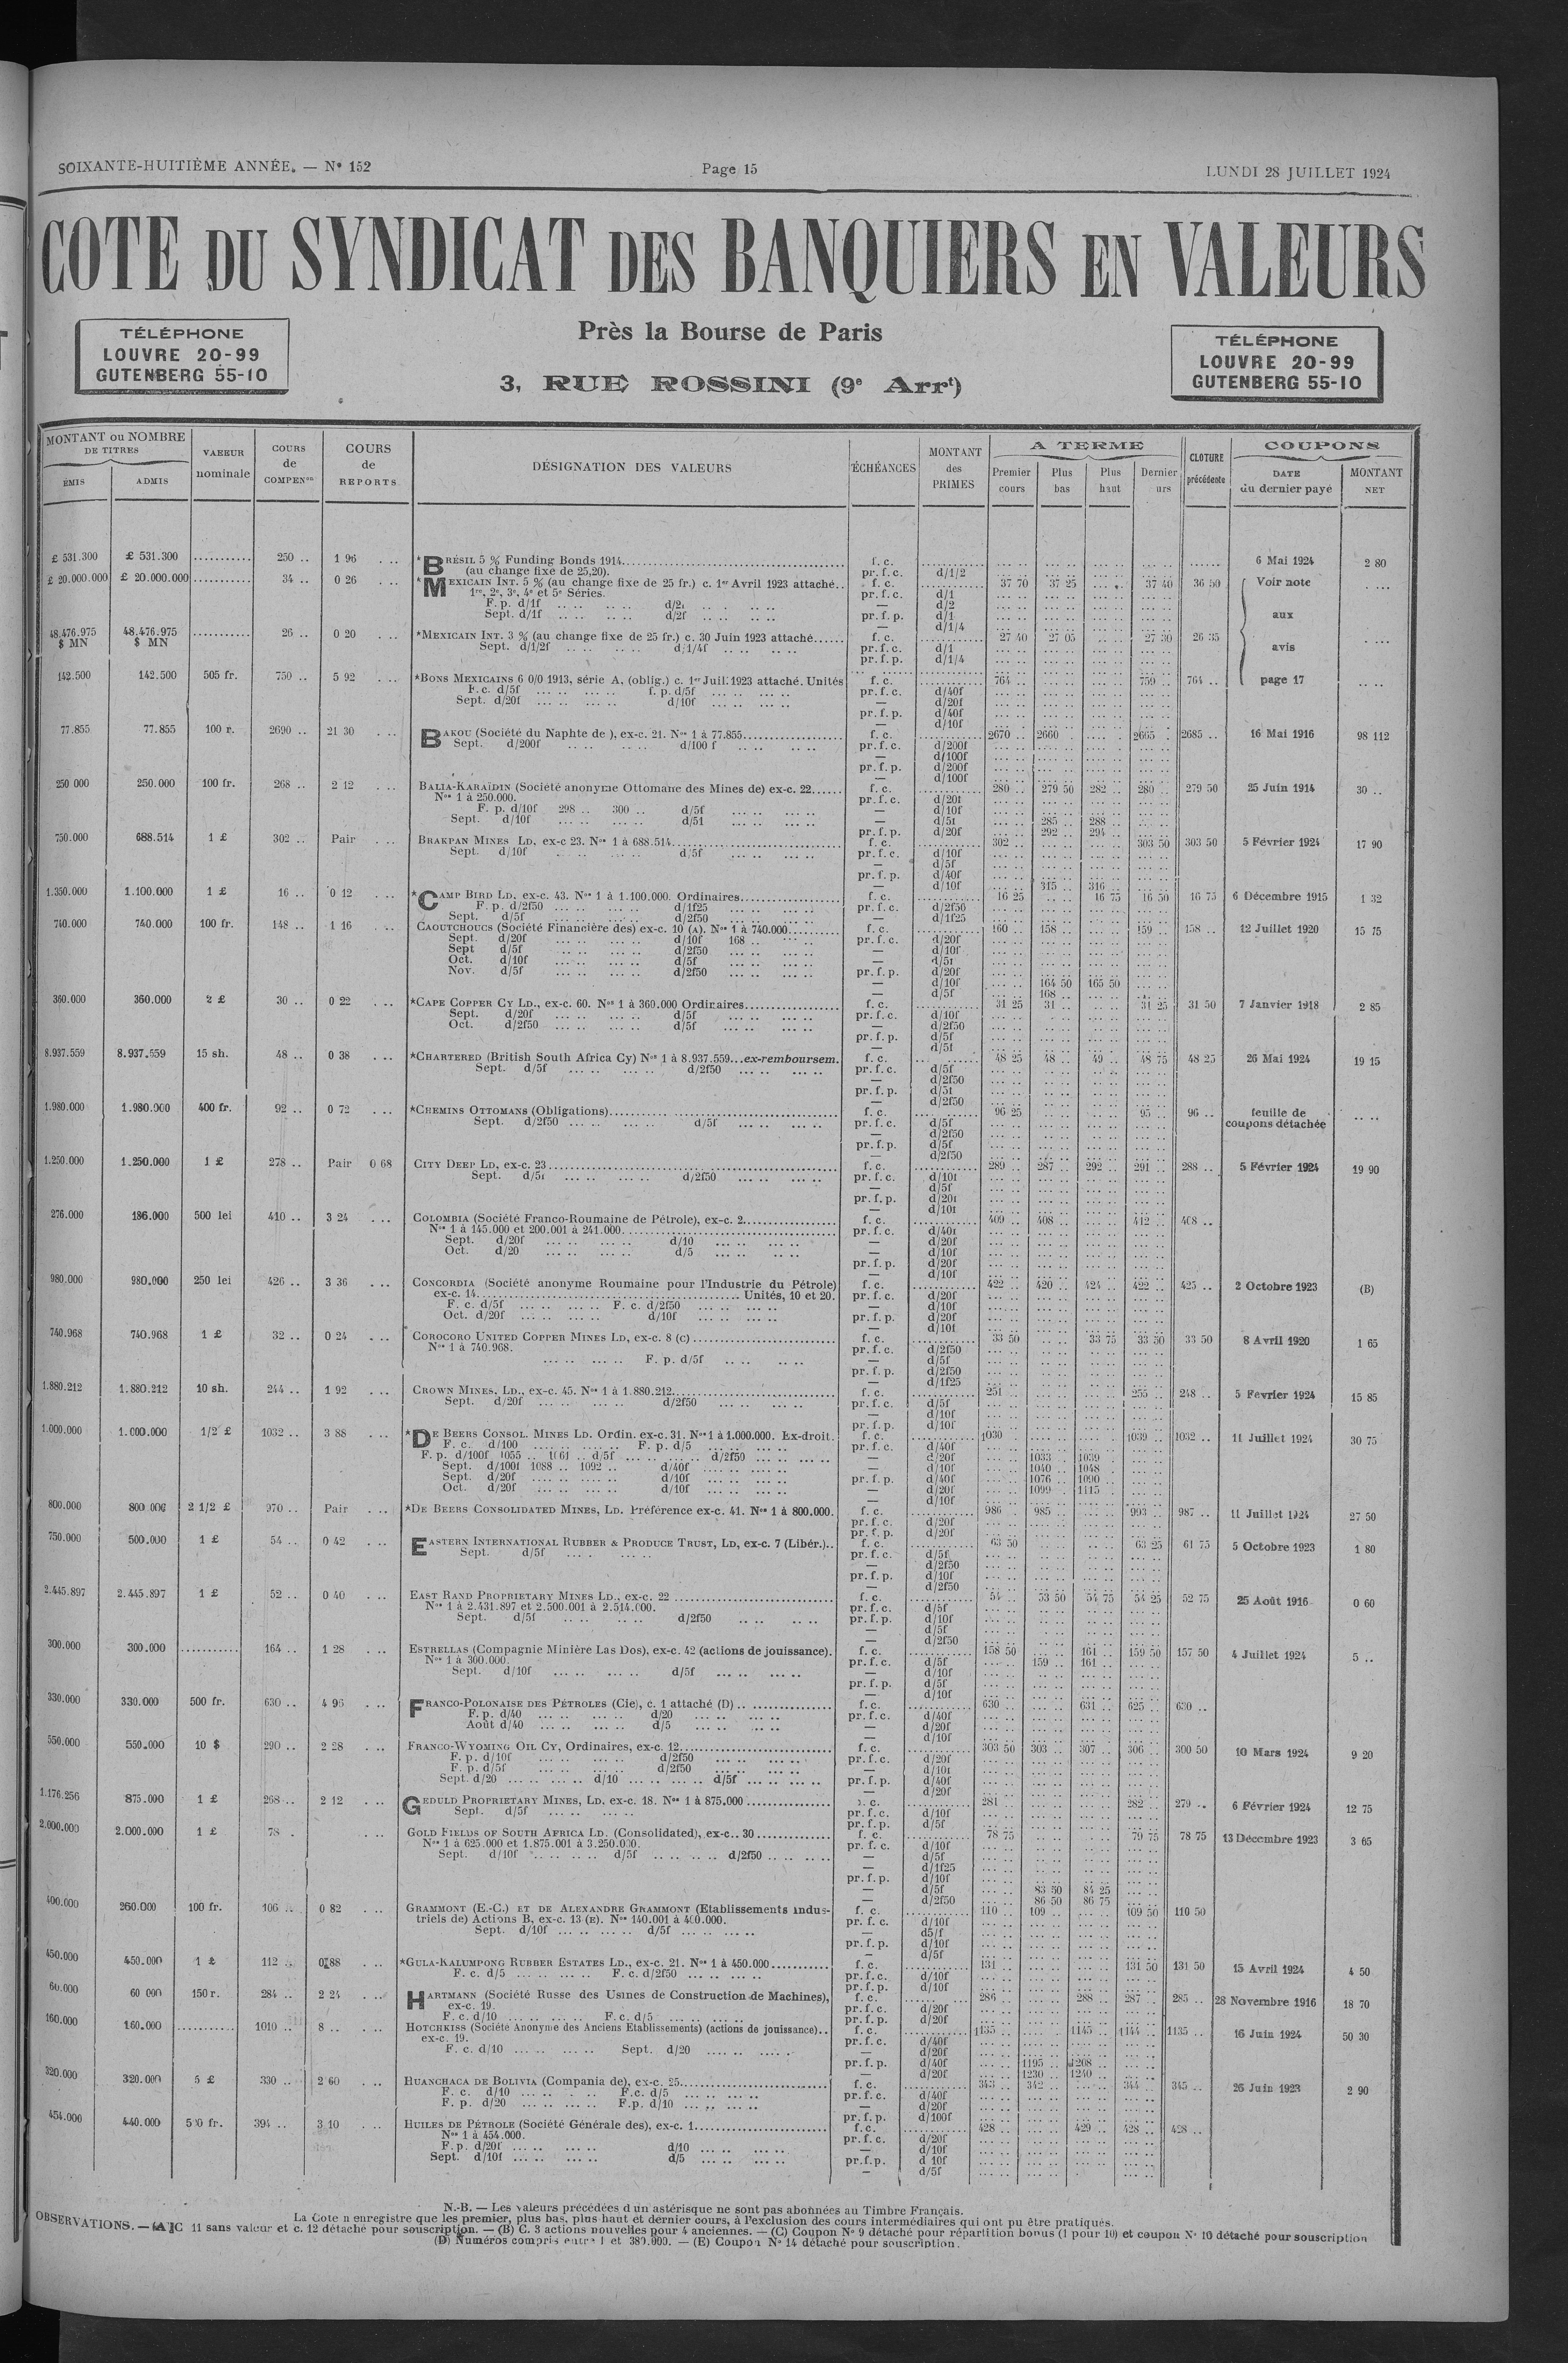 SOIXANTE-HUITIÈME ANNÉE. — N° 152
Page 15
LUNDI 28 JUILLET 1924
COTE DU SYNDICAT DES BANQUIERS EN VALEURS
Près la Bourse de Paris
3, RUE ROSSINI (9e Arrt)
TÉLÉPHONE
LOUVRE 20-99
GUTENBERG 55-10
TÉLÉPHONE
LOUVRE 20-99
GUTENBERG 55-10
MONTANT ou NOMBRE DE TITRES
ÉMIS ADMIS
VALEUR nominale
COURS de COMPENon
COURS de REPORTS
DÉSIGNATION DES VALEURS
ÉCHÉANCES
MONTANT des PRIMES
A TERME
Premier cours Plus bas Plus haut Dernier
CLOTURE précédente
COUPONS
DATE du dernier payé
MONTANT NET
£ 531.300 £ 531.300 ........... 250 .. 1 96 *BRÉSIL 5 % Funding Bonds 1914 f. c. 6 Mai 1924 2 80
(au change fixe de 25,20). pr. f. c. d/1/2
£ 20.000.000 £ 20.000.000 ........... 34 .. 0 26 *MEXICAIN INT. 5 % (au change fixe de 25 fr.) c. 1er Avril 1923 attaché.. f. c. 37 70 37 25 37 40 36 50 Voir note
1re, 2e, 3e, 4e et 5e Séries. pr. f. c. d/1
F. p. d/1f — d/2
Sept. d/1f d/2f pr. f. p. d/1
— d/1/4
aux
48.476.975 $ MN 48.476.975 $ MN ........... 26 .. 0 20 *MEXICAIN INT. 3 % (au change fixe de 25 fr.) c. 30 Juin 1923 attaché...... f. c. 27 40 27 05 27 30 26 35 avis
Sept. d/1/2f d/1/4f pr. f. c. d/1
pr. f. p. d/1/4
142.500 142.500 505 fr. 750 .. 5 92 *BONS MEXICAINS 6 0/0 1913, série A, (oblig.) c. 1er Juil. 1923 attaché. Unités f. c. 764 .. 759 .. 764 .. page 17
F. c. d/5f f. p. d/5f pr. f. c. d/40f
Sept. d/20f d/10f — d/20f
pr. f. p. d/40f
— d/10f
77.855 77.855 100 r. 2690 .. 21 30 BAKOU (Société du Naphte de), ex-c. 21. Nos 1 à 77.855 f. c. 2670 .. 2660 .. 2665 .. 2685 .. 16 Mai 1916 98 112
Sept. d/200f d/100 f pr. f. c. d/200f
— d/100f
pr. f. p. d/200f
— d/100f
250 000 250.000 100 fr. 268 .. 2 12 BALIA-KARAÏDIN (Société anonyme Ottomane des Mines de) ex-c. 22...... f. c. 280 .. 279 50 282 .. 280 .. 279 50 25 Juin 1914 30 ..
Nos 1 à 250.000. pr. f. c. d/20f
F. p. d/10f 298 .. 300 .. d/5f — d/10f
Sept. d/10f d/5f — d/5f 285 .. 288 ..
pr. f. p. d/20f 292 .. 294 ..
750.000 688.514 1 £ 302 .. Pair BRAKPAN MINES LD, ex-c 23. Nos 1 à 688.514 f. c. 302 .. 303 50 303 50 5 Février 1924 17 90
Sept. d/10f d/5f pr. f. c. d/10f
— d/5f
pr. f. p. d/40f
— d/10f 315 .. 316 ..
1.350.000 1.100.000 1 £ 16 .. 0 12 *CAMP BIRD LD, ex-c. 43. Nos 1 à 1.100.000. Ordinaires f. c. 16 25 16 75 16 50 16 75 6 Décembre 1915 1 32
F. p. d/2f50 d/1f25 pr. f. c. d/2f50
Sept. d/5f d/2f50 — d/1f25
740.000 740.000 100 fr. 148 .. 1 16 CAOUTCHOUCS (Société Financière des) ex-c. 10 (A). Nos 1 à 740.000 f. c. 160 .. 158 .. 159 .. 158 .. 12 Juillet 1920 15 75
Sept. d/20f d/10f 168 .. pr. f. c. d/20f
Sept d/5f d/2f50 — d/10f
Oct. d/10f d/5f — d/5f
Nov. d/5f d/2f50 pr. f. p. d/20f
— d/10f 164 50 165 50
— d/5f 168 ..
360.000 360.000 2 £ 30 .. 0 22 *CAPE COPPER CY LD., ex-c. 60. Nos 1 à 360.000 Ordinaires f. c. 31 25 31 .. 31 25 31 50 7 Janvier 1918 2 85
Sept. d/20f d/5f pr. f. c. d/10f
Oct. d/2f50 d/5f — d/2f50
pr. f. p. d/5f
— d/5f
8.937.559 8.937.559 15 sh. 48 .. 0 38 *CHARTERED (British South Africa Cy) Nos 1 à 8.937.559...ex-remboursem. f. c. 48 25 48 .. 49 .. 48 75 48 25 26 Mai 1924 19 15
Sept. d/5f d/2f50 pr. f. c. d/5f
— d/2f50
pr. f. p. d/5f
— d/2f50
1.980.000 1.980.000 400 fr. 92 .. 0 72 *CHEMINS OTTOMANS (Obligations) f. c. 96 25 95 .. 96 .. feuille de
Sept. d/2f50 d/5f pr. f. c. d/5f coupons détachée
— d/2f50
pr. f. p. d/5f
— d/2f50
1.250.000 1.250.000 1 £ 278 .. Pair 0 68 CITY DEEP LD, ex-c. 23 f. c. 289 .. 287 .. 292 .. 291 .. 288 .. 5 Février 1924 19 90
Sept. d/5f d/2f50 pr. f. c. d/10f
— d/5f
pr. f. p. d/20f
— d/10f
276.000 186.000 500 lei 410 .. 3 24 COLOMBIA (Société Franco-Roumaine de Pétrole), ex-c. 2 f. c. 409 .. 408 .. 412 .. 408 ..
Nos 1 à 145.000 et 200.001 à 241.000 pr. f. c. d/40f
Sept. d/20f d/10 — d/20f
Oct. d/20 d/5 — d/10f
pr. f. p. d/20f
— d/10f
980.000 980.000 250 lei 426 .. 3 36 CONCORDIA (Société anonyme Roumaine pour l'Industrie du Pétrole) f. c. 422 .. 420 .. 424 .. 422 .. 425 .. 2 Octobre 1923 (B)
ex-c. 14. Unités, 10 et 20. pr. f. c. d/20f
F. c. d/5f F. c. d/2f50 — d/10f
Oct. d/20f d/10f pr. f. p. d/20f
— d/10f
740.968 740.968 1 £ 32 .. 0 24 COROCORO UNITED COPPER MINES LD, ex-c. 8 (C) f. c. 33 50 33 75 33 50 33 50 8 Avril 1920 1 65
Nos 1 à 740.968. pr. f. c. d/2f50
F. p. d/5f — d/5f
pr. f. p. d/2f50
— d/1f25
1.880.212 1.880.212 10 sh. 244 .. 1 92 CROWN MINES, LD., ex-c. 45. Nos 1 à 1.880.212 f. c. 251 .. 255 .. 248 .. 5 Fevrier 1924 15 85
Sept. d/20f d/2f50 pr. f. c. d/5f
— d/10f
pr. f. p. d/10f
1.000.000 1.000.000 1/2 £ 1032 .. 3 88 *DE BEERS CONSOL. MINES LD. Ordin. ex-c. 31. Nos 1 à 1.000.000. Ex-droit. f. c. 1030 1039 .. 1032 .. 11 Juillet 1924 30 75
F. c. d/100 F. p. d/5 pr. f. c. d/40f
F. p. d/100f 1055 .. 1061 .. d/5f d/2f50 — d/20f 1033 1039 ..
Sept. d/100f 1088 .. 1092 .. d/40f — d/10f 1040 .. 1048 ..
Sept. d/20f d/10f pr. f. p. d/40f 1076 .. 1090 ..
Oct. d/20f d/10f — d/20f 1099 .. 1115 ..
— d/10f
800.000 800 000 2 1/2 £ 970 .. Pair *DE BEERS CONSOLIDATED MINES, LD. Préférence ex-c. 41. Nos 1 à 800.000. f. c. 986 .. 985 .. 993 .. 987 .. 11 Juillet 1924 27 50
pr. f. c. d/20f
pr. f. p. d/20f
750.000 500.000 1 £ 54 .. 0 42 EASTERN INTERNATIONAL RUBBER & PRODUCE TRUST, LD, ex-c. 7 (Libér.).. f. c. 63 50 63 25 61 75 5 Octobre 1923 1 80
Sept. d/5f pr. f. c. d/5f
— d/2f50
pr. f. p. d/10f
— d/2f50
2.445.897 2.445.897 1 £ 52 .. 0 40 EAST RAND PROPRIETARY MINES LD., ex-c. 22 f. c. 54 .. 53 50 54 75 54 25 52 75 25 Août 1916 0 60
Nos 1 à 2.431.897 et 2.500.001 à 2.514.000. pr. f. c. d/5f
Sept. d/5f d/2f50 pr. f. p. d/10f
— d/5f
— d/2f50
300.000 300.000 ........... 164 .. 1 28 ESTRELLAS (Compagnie Minière Las Dos), ex-c. 42 (actions de jouissance). f. c. 158 50 161 .. 159 50 157 50 4 Juillet 1924 5 ..
Nos 1 à 300.000. pr. f. c. d/5f 159 .. 161 ..
Sept. d/10f d/5f — d/10f
pr. f. p. d/5f
— d/10f
330.000 330.000 500 fr. 630 .. 4 96 FRANCO-POLONAISE DES PÉTROLES (Cie), c. 1 attaché (D) f. c. 630 .. 631 .. 625 .. 630 ..
F. p. d/40 d/20 pr. f. c. d/40f
Août d/40 d/5 — d/20f
— d/10f
550.000 550.000 10 $ 290 .. 2 28 FRANCO-WYOMING OIL CY, Ordinaires, ex-c. 12 f. c. 303 50 303 .. 307 .. 306 .. 300 50 10 Mars 1924 9 20
F. p. d/10f d/2f50 pr. f. c. d/20f
F. p. d/5f d/2f50 — d/10f
Sept. d/20 d/10 d/5f pr. f. p. d/40f
— d/20f
1.176.256 875.000 1 £ 268 .. 2 12 GEDULD PROPRIETARY MINES, LD, ex-c. 18. Nos 1 à 875.000 f. c. 281 .. 282 .. 279 .. 6 Février 1924 12 75
Sept. d/5f pr. f. c. d/10f
pr. f. p. d/5f
2.000.000 2.000.000 1 £ 78 . GOLD FIELDS OF SOUTH AFRICA LD. (Consolidated), ex-c.. 30 f. c. 78 75 79 75 78 75 13 Décembre 1923 3 65
Nos 1 à 625.000 et 1.875.001 à 3.250.000. pr. f. c. d/10f
Sept. d/10f d/5f d/2f50 — d/5f
— d/1f25
pr. f. p. d/10f
— d/5f 83 50 84 25
— d/2f50 86 50 86 75
400.000 260.000 100 fr. 106 .. 0 82 GRAMMONT (E.-C.) ET DE ALEXANDRE GRAMMONT (Etablissements indus- f. c. 110 .. 109 .. 109 50 110 50
triels de) Actions B, ex-c. 13 (E). Nos 140.001 à 400.000. pr. f. c. d/10f
Sept. d/10f d/5f — d5/f
pr. f. p. d/10f
— d/5f
450.000 450.000 1 £ 112 .. 0 88 *GULA-KALUMPONG RUBBER ESTATES LD., ex-c. 21. Nos 1 à 450.000 f. c. 131 .. 131 50 131 50 15 Avril 1924 4 50
F. c. d/5 F. c. d/2f50 pr. f. c. d/10f
pr. f. p. d/10f
60.000 60 000 150 r. 284 .. 2 24 HARTMANN (Société Russe des Usines de Construction de Machines), f. c. 286 .. 288 .. 287 .. 285 .. 28 Novembre 1916 18 70
ex-c. 19. pr. f. c. d/20f
F. c. d/10 F. c. d/5 pr. f. p. d/20f
160.000 160.000 ........... 1010 .. 8 .. HOTCHKISS (Société Anonyme des Anciens Etablissements) (actions de jouissance).. f. c. 1135 .. 1145 .. 1144 .. 1135 .. 16 Juin 1924 50 30
ex-c. 19. pr. f. c. d/40f
F. c. d/10 Sept. d/20 — d/20f
pr. f. p. d/40f 1195 .. 1208 ..
— d/20f 1230 .. 1240 ..
320.000 320.000 5 £ 330 .. 2 60 HUANCHACA DE BOLIVIA (Compania de), ex-c. 25 f. c. 343 .. 342 .. 344 .. 345 .. 26 Juin 1923 2 90
F. c. d/10 F.c. d/5 pr. f. c. d/40f
F. p. d/20 F.p. d/10 — d/20f
pr. f. p. d/100f
454.000 440.000 500 fr. 394 .. 3 10 HUILES DE PÉTROLE (Société Générale des), ex-c. 1 f. c. 428 .. 429 .. 428 .. 428 ..
Nos 1 à 454.000. pr. f. c. d/20f
F. p. d/20f d/10 — d/10f
Sept. d/10f d/5 pr.f.p. d 10f
— d/5f
N.-B. — Les valeurs précédées d'un astérisque ne sont pas abonnées au Timbre Français.
La Cote n'enregistre que les premier, plus bas, plus haut et dernier cours, à l'exclusion des cours intermédiaires qui ont pu être pratiqués.
OBSERVATIONS. — (A) C 11 sans valeur et c. 12 détaché pour souscription. — (B) C. 3 actions nouvelles pour 4 anciennes. — (C) Coupon N° 9 détaché pour répartition bonus (1 pour 10) et coupon N° 10 détaché pour souscription
(D) Numéros compris entre 1 et 380.000. — (E) Coupon N° 14 détaché pour souscription.